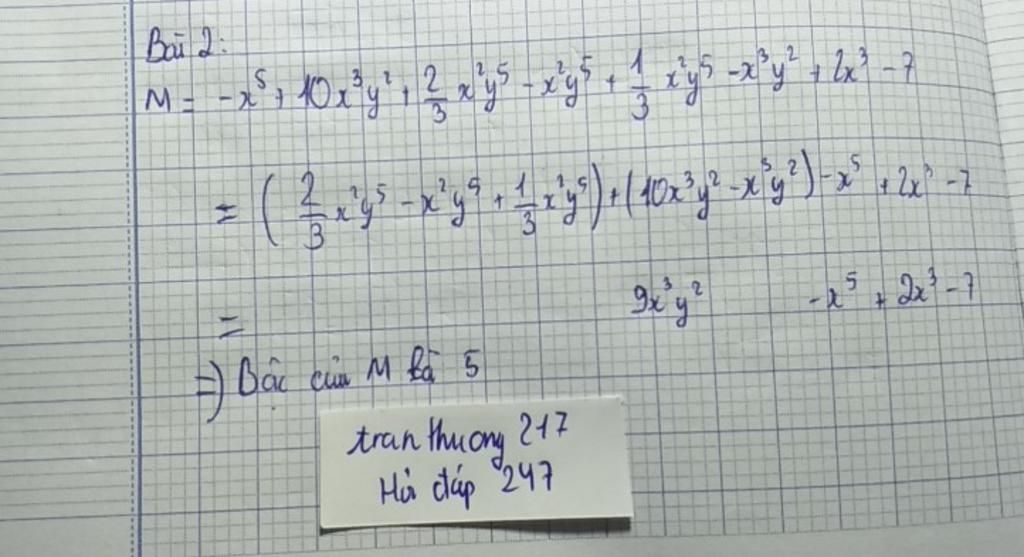 Bài 2:
M = -x⁵ + 10x³y² + 2/3 x²y⁵ - x²y⁵ + 1/3 x²y⁵ - x³y² + 2x³ - 7
= (2/3 x²y⁵ - x²y⁵ + 1/3 x²y⁵) + (10x³y² - x³y²) - x⁵ + 2x³ - 7
= 9x³y² - x⁵ + 2x³ - 7
=) Bậc của M là 5
tran thuong 217
Hỏi đáp 247